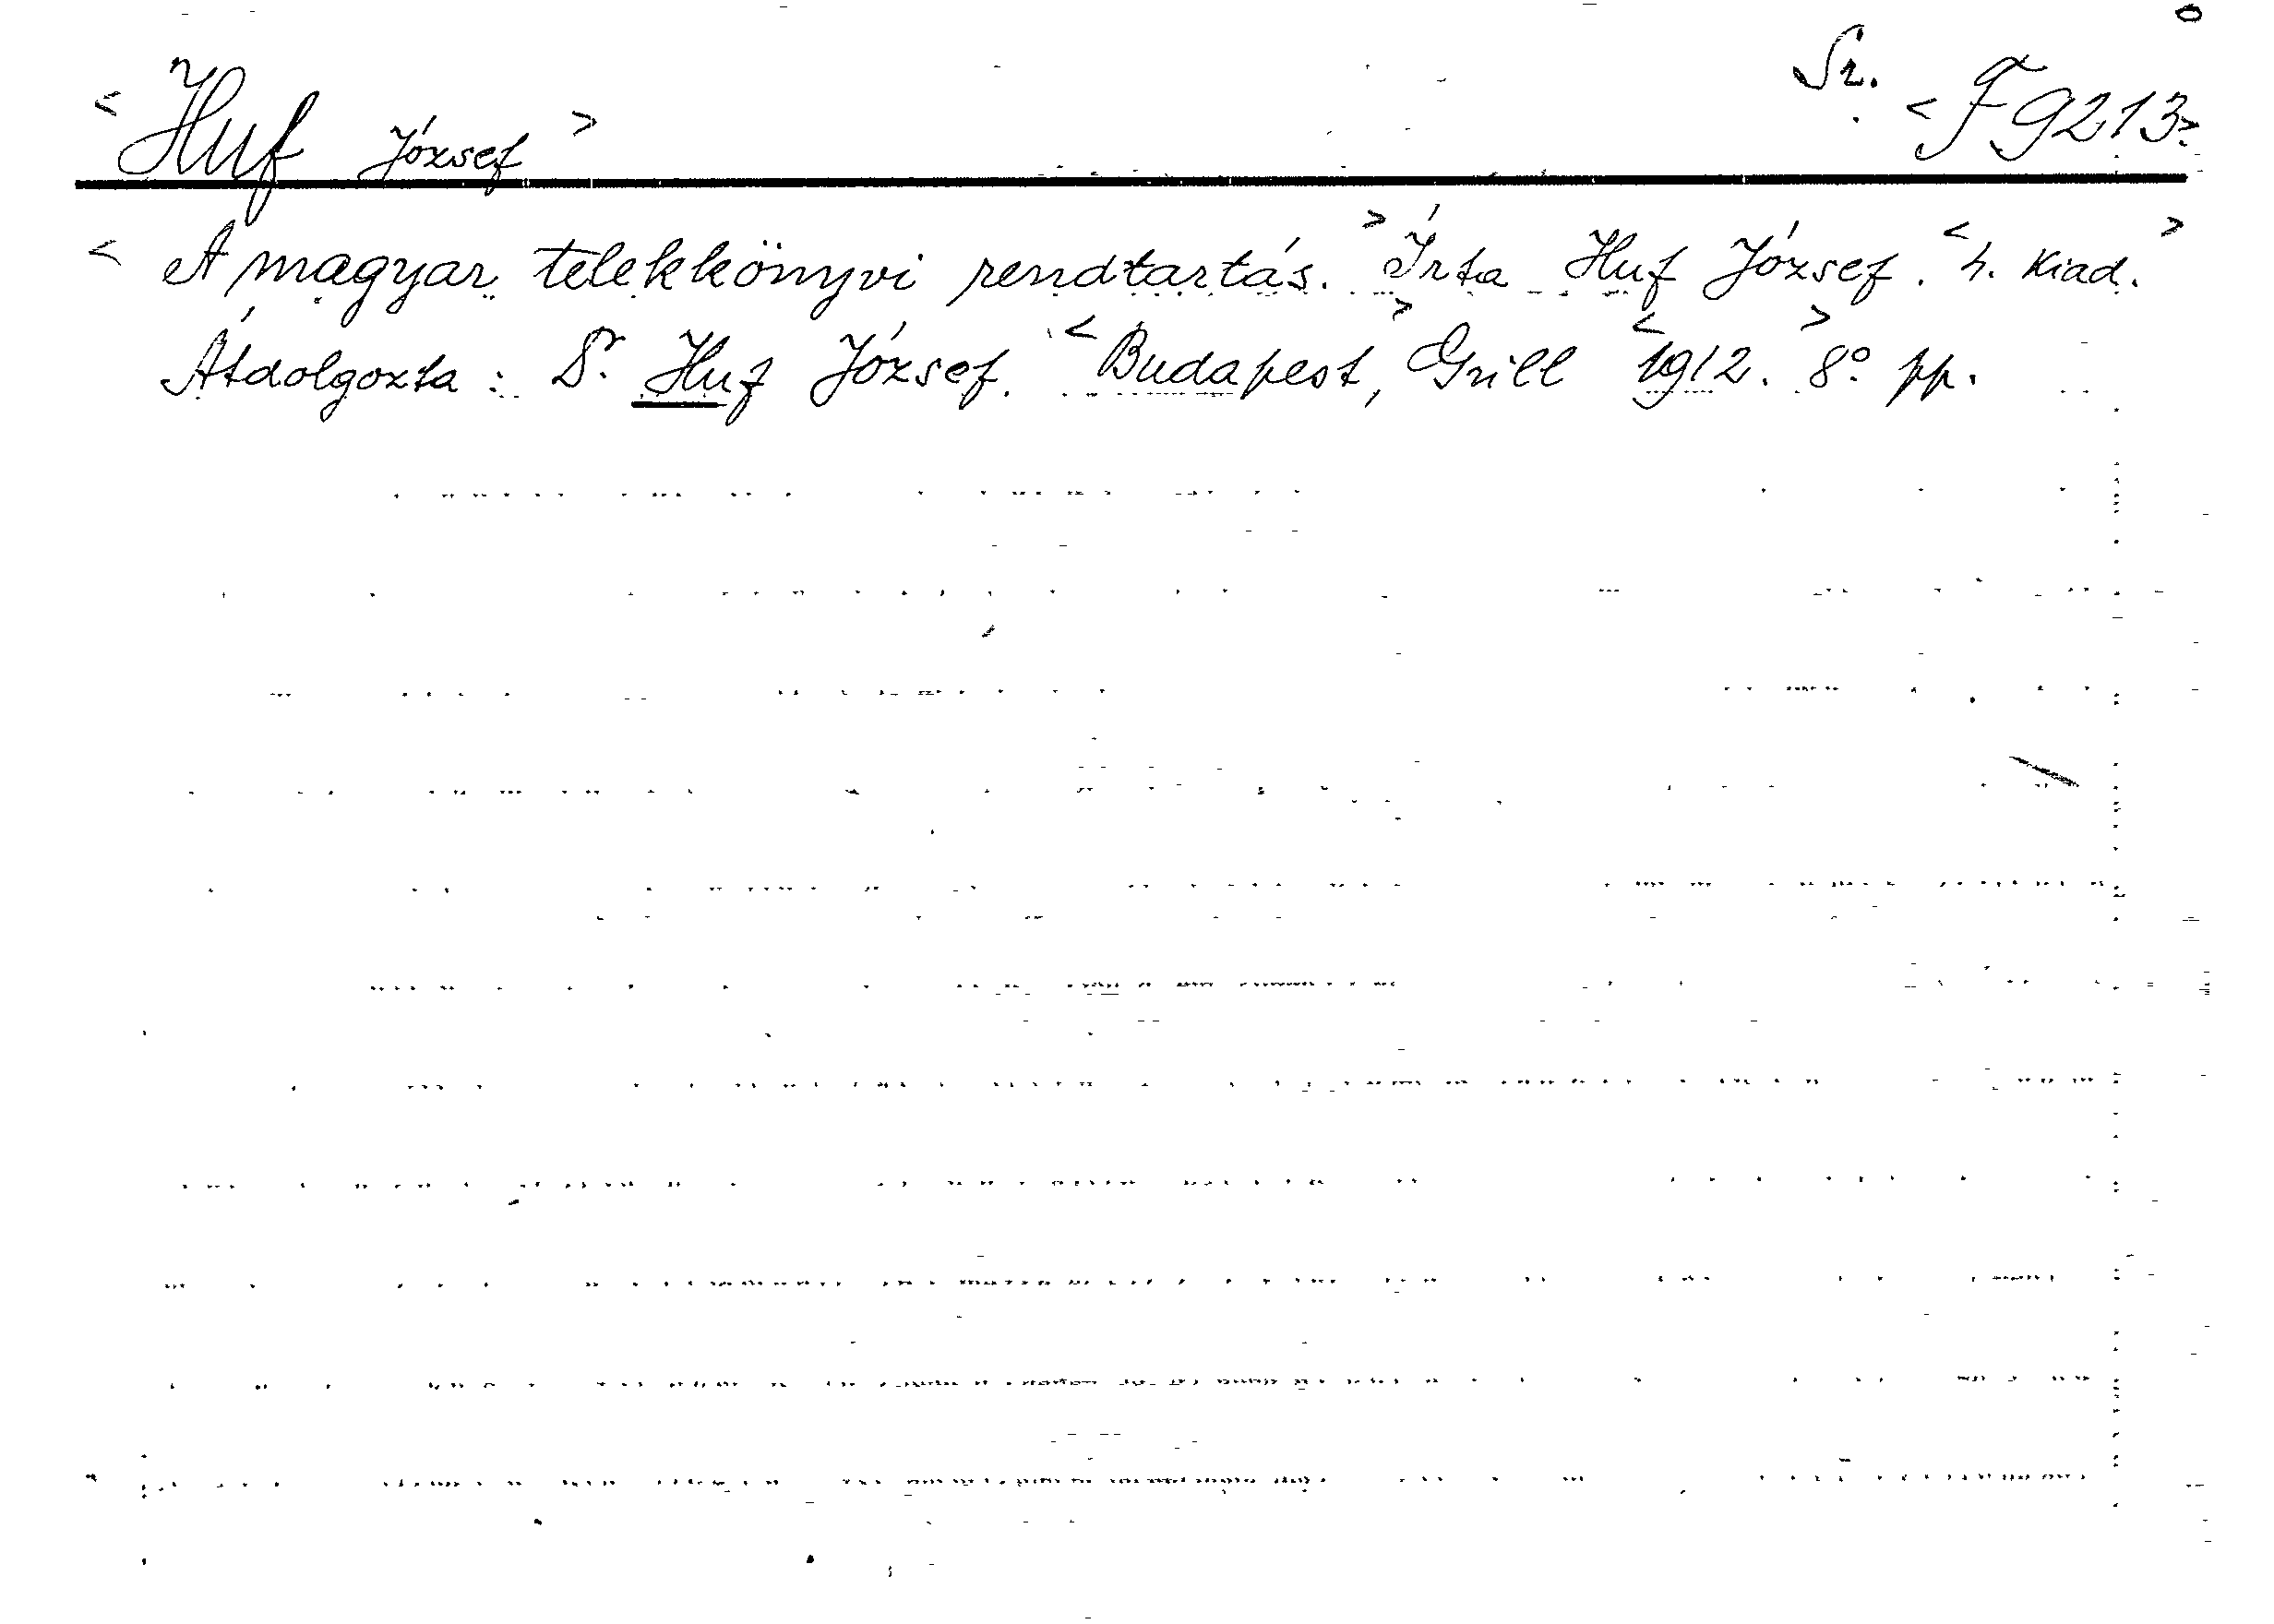 Sz.
<Huf József> <F 9213>
<A magyar telekkönyvi rendtartás.> Írta Huf József. <4. kiad.>
Átdolgozta: Dr. Huf József. <Budapest,> Grill <1912.> 8° pp.